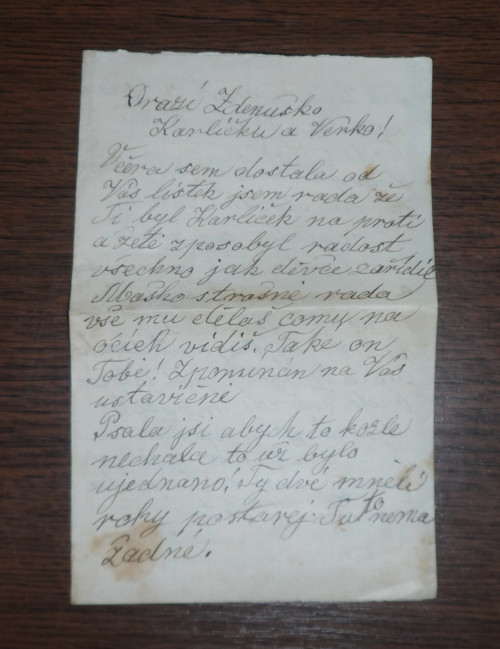 Drazí Zdenuško
Karlíčku a Verko!
Včera sem dostala od
Vás lístek jsem rada že
Ti byl Karlíček na proti
a žetě zposobyl radost
všechno jak děvče zařídil
strašně rada
vše mu děláš comu na
ocích vidíš. Take on
Tobě! Zpominan na Vás
ustavičně
Psala jsi abych to kozle
nechala to už bylo
ujednano! Ty dvě mněli
roky postarej Tu to nema
Žadné!